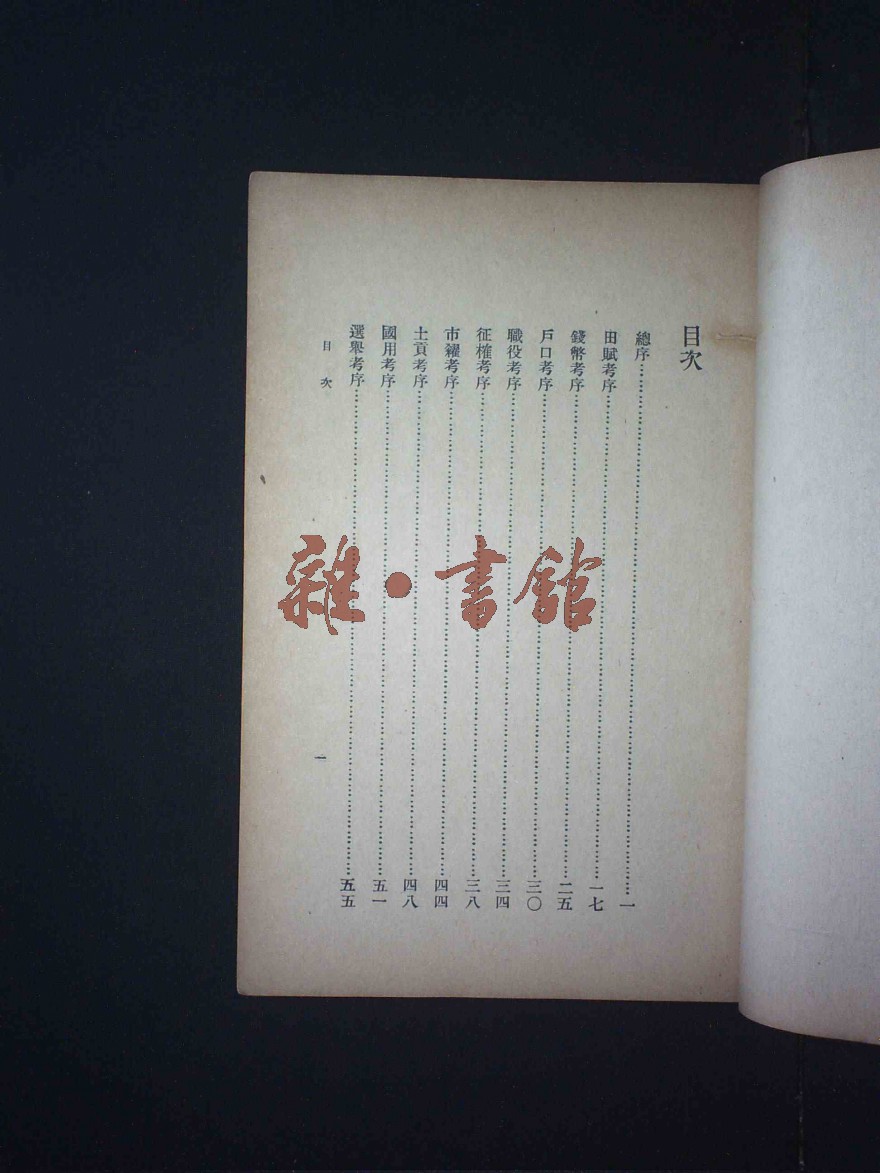 目次
總序……一
田賦考序……一七
錢幣考序……二五
戶口考序……三〇
職役考序……三四
征榷考序……三八
市糴考序……四四
土貢考序……四八
國用考序……五一
選舉考序……五五
目次 一
雜·書館